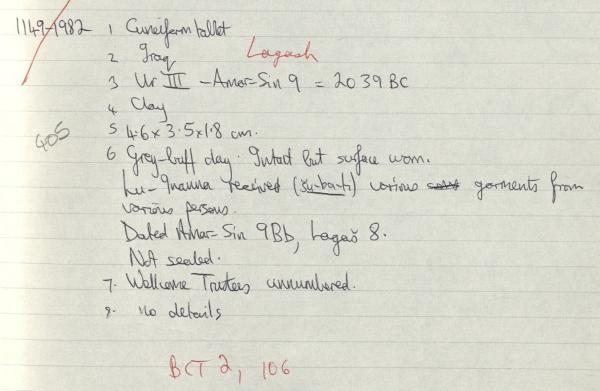 1149-1982 1 Cuneiform tablet
2 Iraq Lagash
3 Ur III - Amar-Sin 9 = 2039 BC
4 Clay
405
5 4.6 x 3.5 x 1.8 cm.
6 Grey-buff clay. Intact but surface worn.
Lu-Inanna received (šu-ba-ti) various garments from
various persons.
Dated Amar-Sin 9Bb, Lagaš 8.
Not sealed.
7. Wellcome Trustees unnumbered.
8. no details
BCT 2, 106